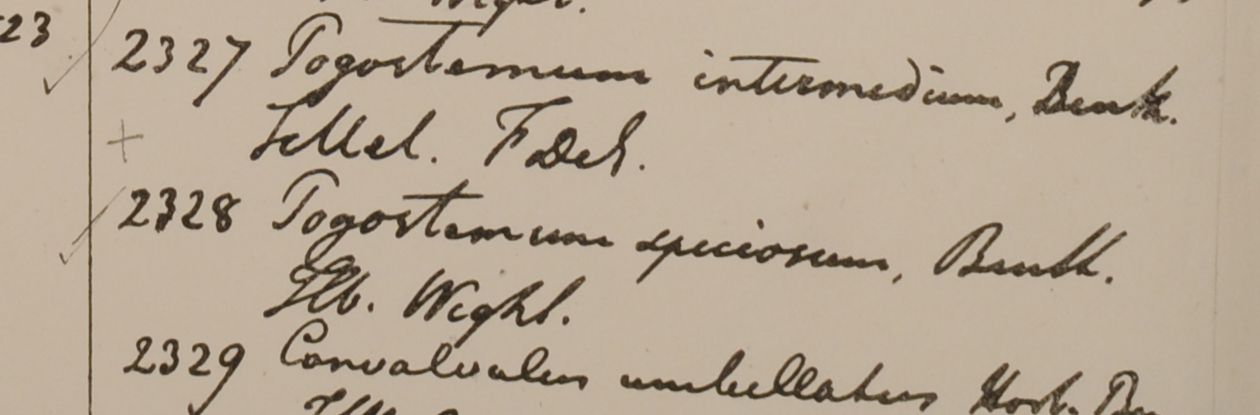 23
Wight.
2327 Pogostemum intermedium, Benth.
F Del.
2328 Pogostemum speciosum, Benth.
Hb. Wight.
2329 Convolvulus umbellatus Hort.